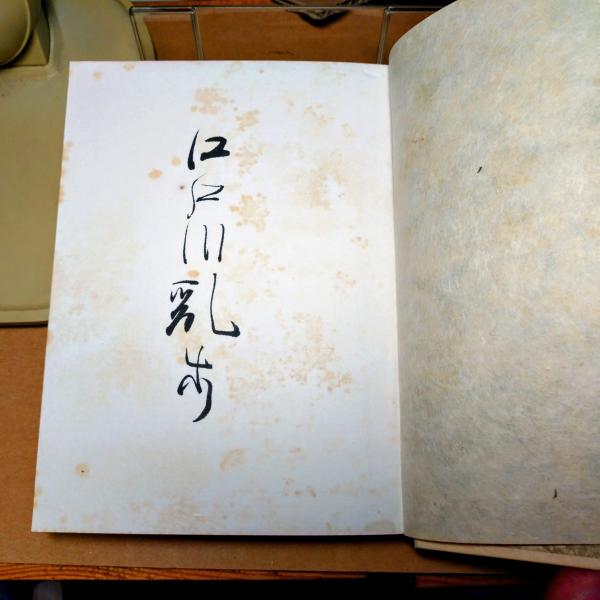 江戸川乱歩